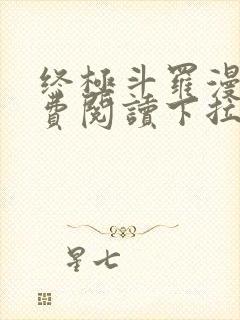 终極斗羅漫
費閱讀下拉
星七